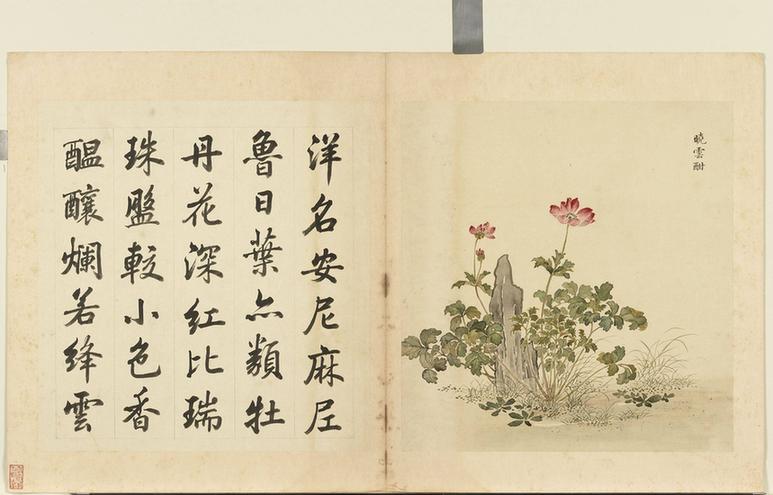 曉雲酣
洋名安尼麻尼
魯日葉亦類牡
丹花深紅比瑞
珠盤較小色香
醖釀爛若絳雲